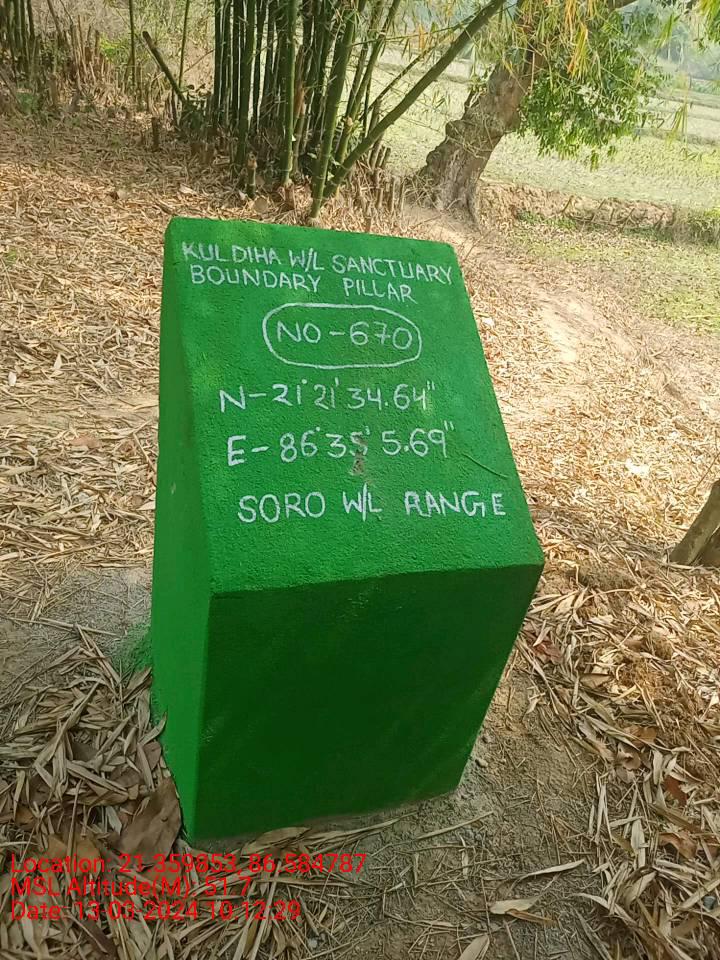 KULDIHA W/L SANCTUARY
BOUNDARY PILLAR
NO-670
N-21° 21' 34.64"
E-86° 35' 5.69"
SORO W/L RANGE
Location: 21.359853, 86.584787
MSL Altitude(M): 51.7
Date: 13-03-2024 10:12:29